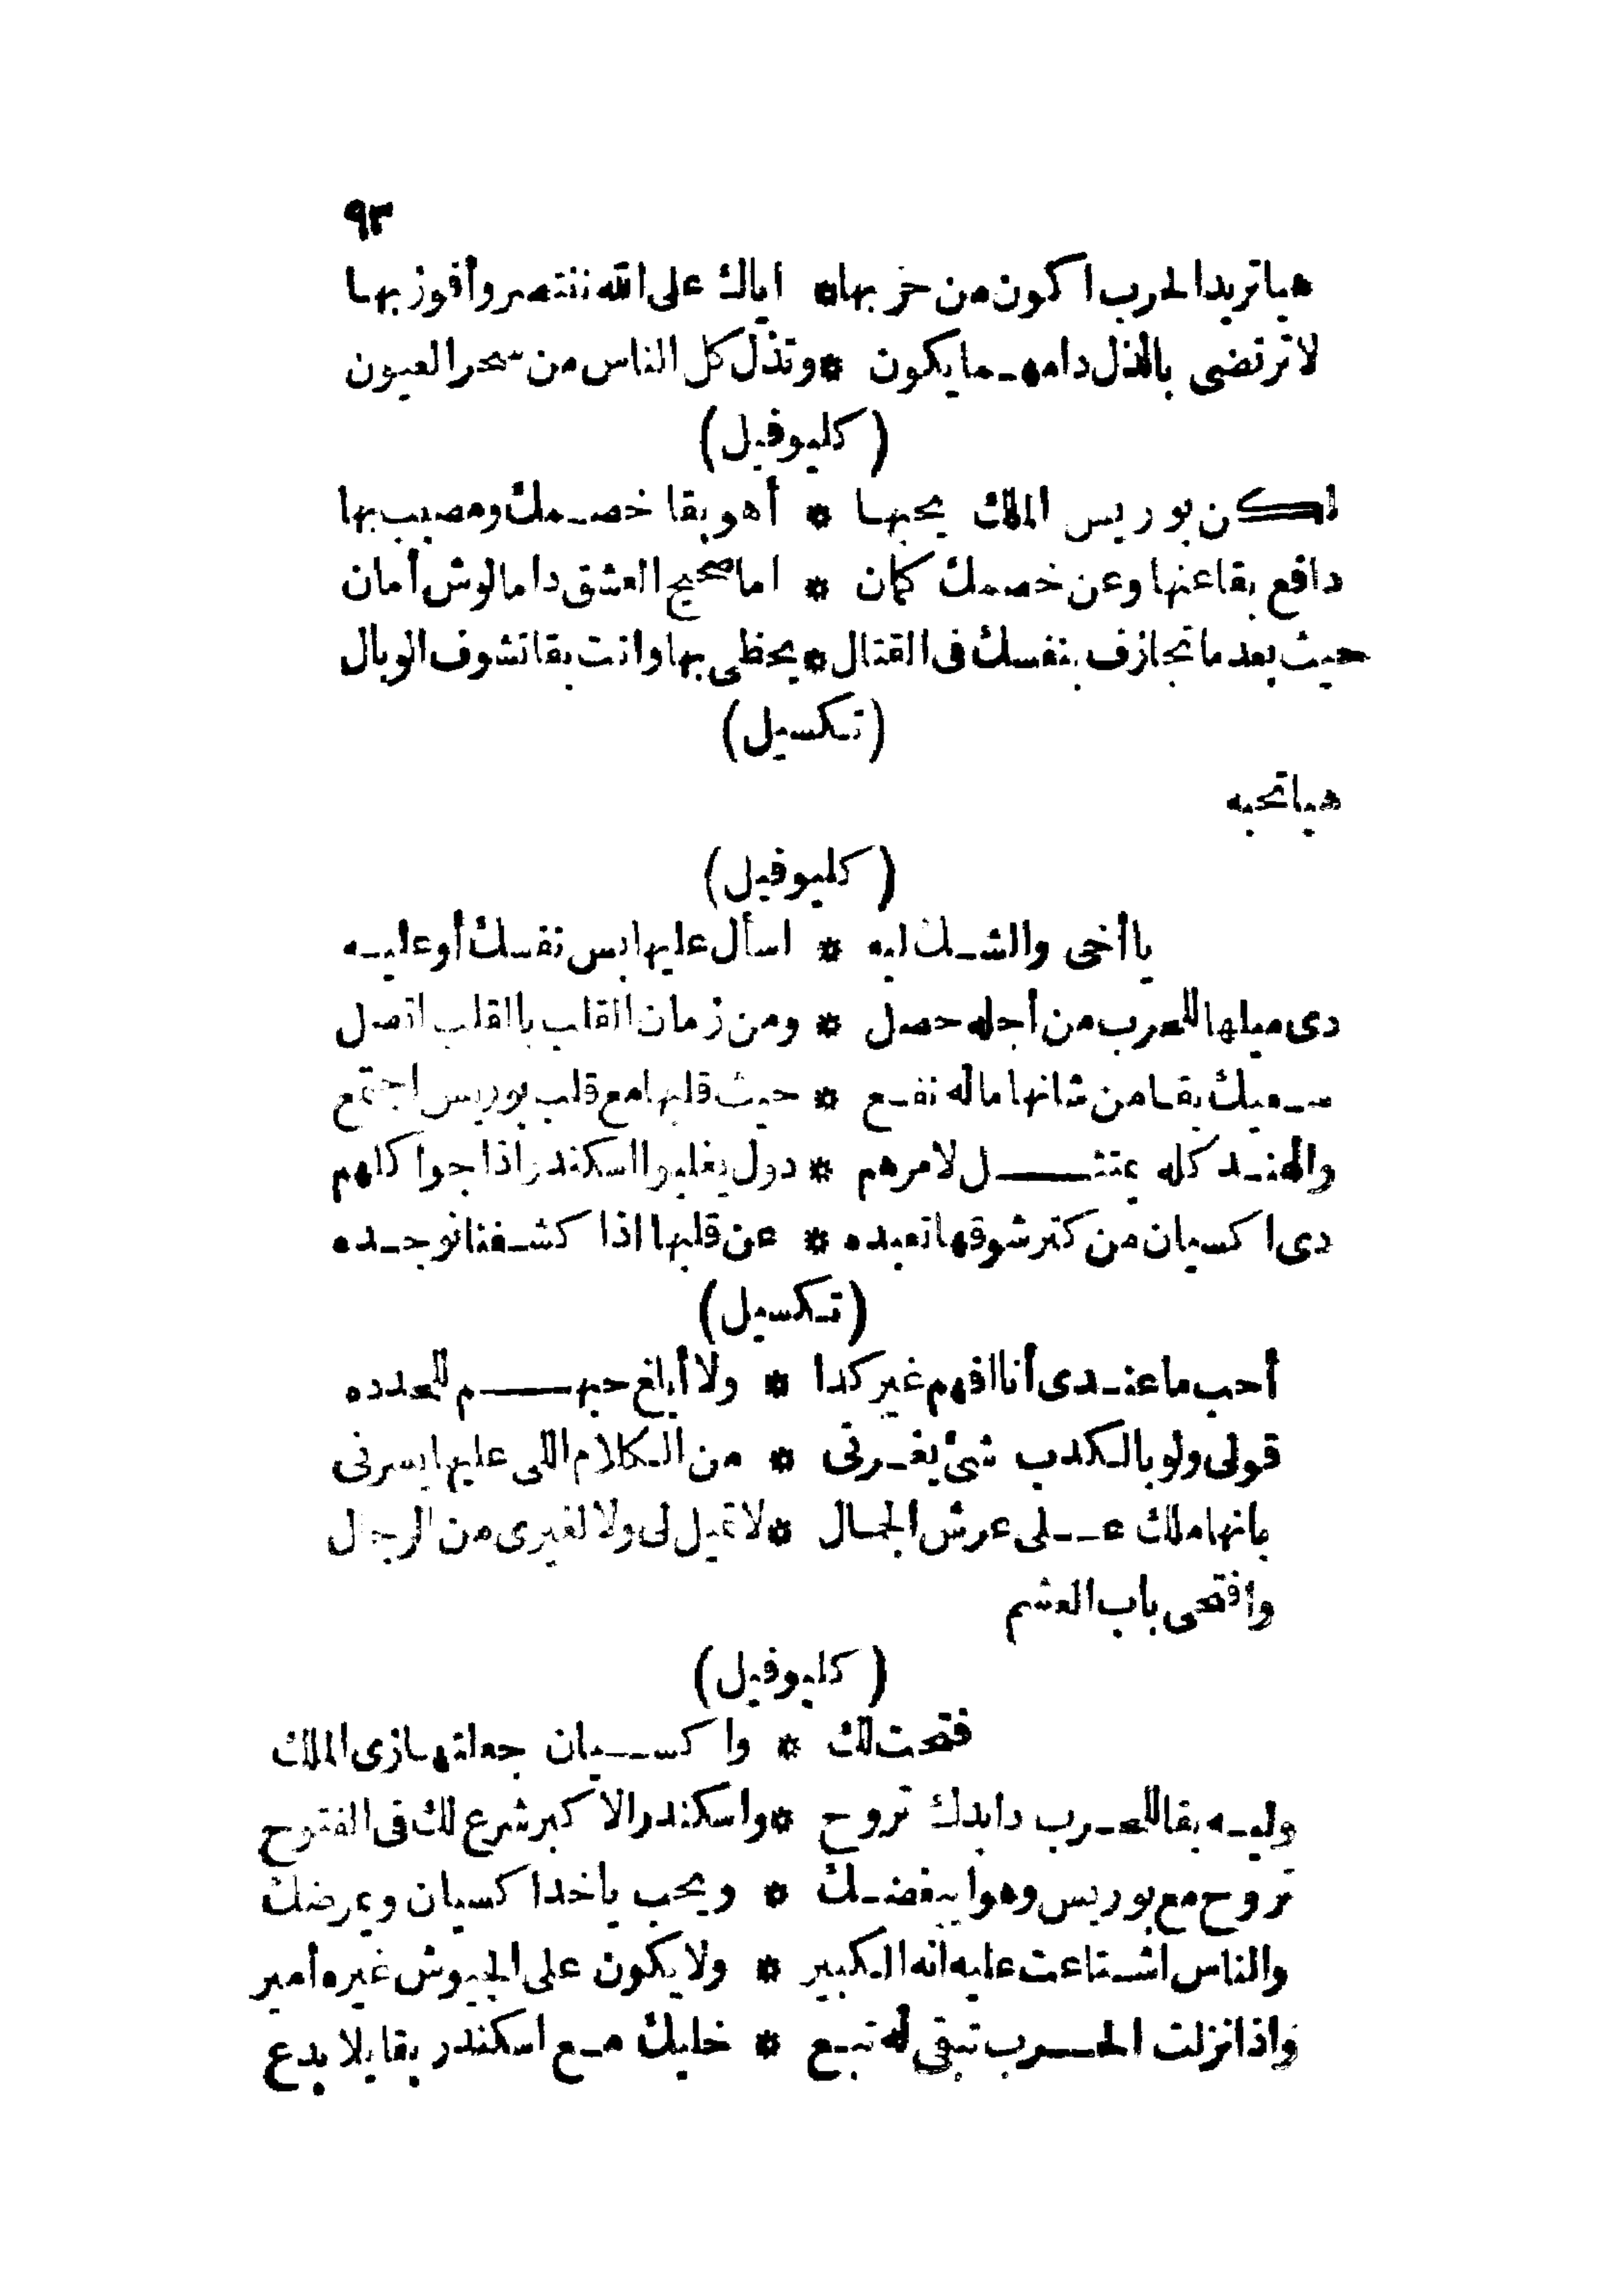 ٩٣
هيا تريد الحرب اكون من حزبها * اياك على الله ننتصر وأفوز بها
لا ترتضى بالذل دا مهما يكون * وتذل كل الناس من سحر العيون
(كليوفيل)
لكن بوريس الملك يحبها * أهو بقا خصمك ومصيب بها
دافع بقا عنها وعن خصمك كمان * اما صحيح العشق دا مالوش أمان
حيث بعد ما تجازف بنفسك فى القتال * يحظى بها وانت بقا تشوف الوبال
(تكسيل)
هيا تحبه
(كليوفيل)
يا أخى والشك ليه * اسأل عليها بس نفسك أو عليه
دى ميلها للحرب من أجله حصل * ومن زمان القلب بالقلب اتصل
سعيك بقا من شانها ماله نفع * حيث قلبها مع قلب بوريس اجتمع
والهند كله يمتثل لامرهم * دول يغلبوا اسكندر اذا جوا كلهم
دى اكسيان من كتر شوقها تعبده * عن قلبها اذا كشفنا نوجده
(تكسيل)
أحب ما عندى أنا افهم غير كدا * ولا أبلغ حبهم للعدده
قولى ولو بالكدب شئ يغرنى * من الكلام اللى عليها يسرنى
بانها ملك على عرش الجمال * لا تميل لى ولا لغيرى من الرجال
وافتحى باب العشم
(كليوفيل)
فتحت لك * واكسيان جعلتها زى الملك
وليه بقا للحرب دا بدك تروح * واسكندر الاكبر شرع لك فى الفتوح
تروح مع بوريس وهوا يبغضك * ويحب ياخد اكسيان ويمرضك
والناس اشتاعت عليه انه الكبير * ولا يكون على الجيوش غيره أمير
واذا نزلت الحرب تبقى له تبع * خليك مع اسكندر بقا بلا بدع